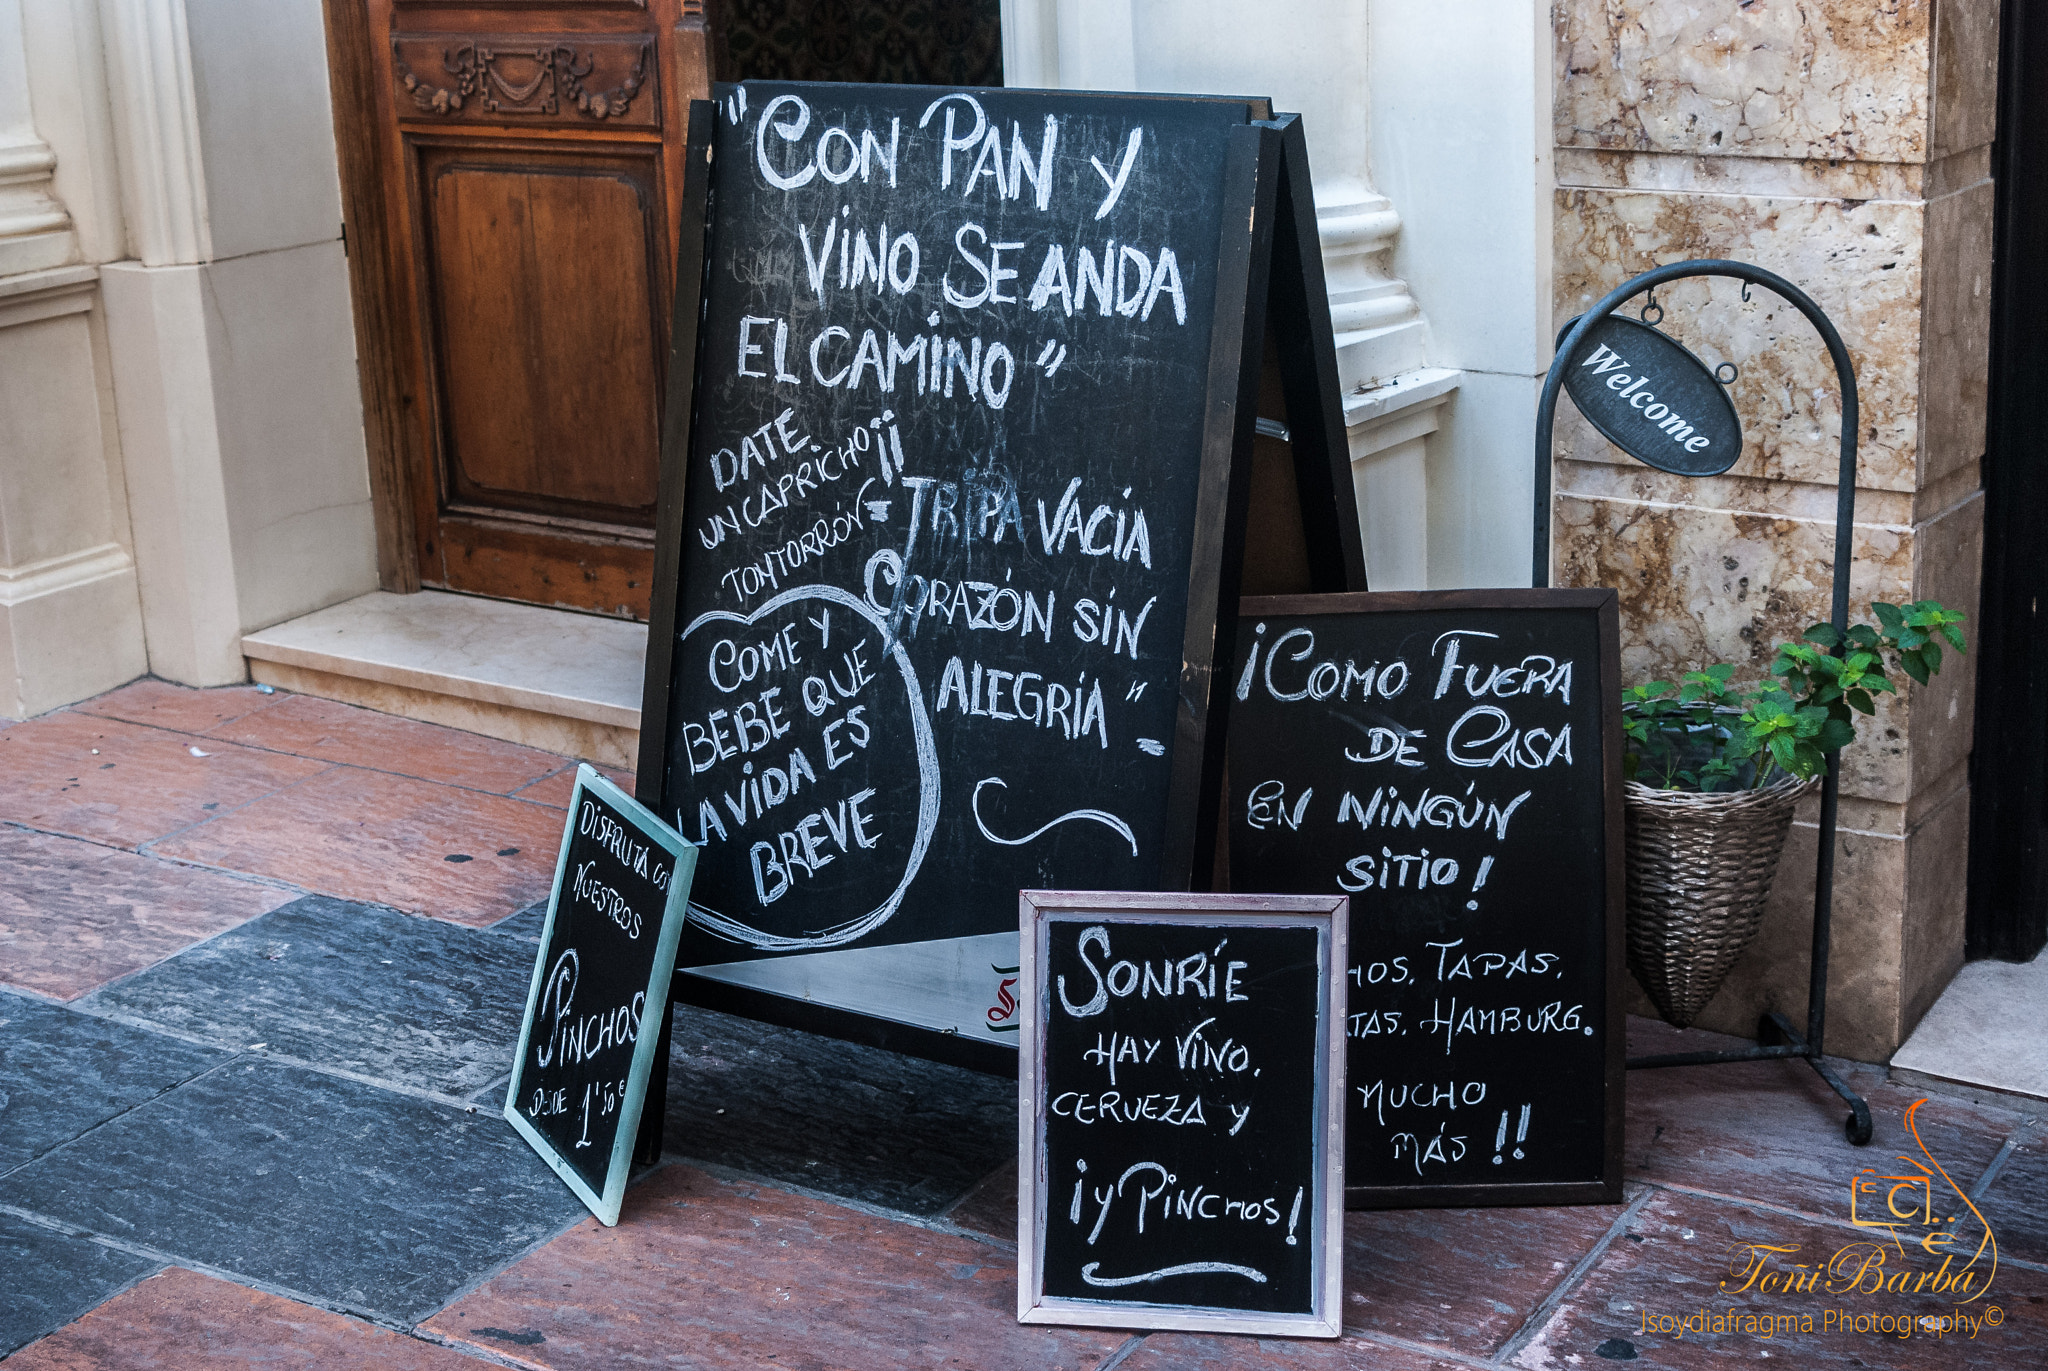 "CON PAN Y
VINO SE ANDA
EL CAMINO"
DATE
UN CAPRICHO
TONTORRÓN
¡¡
= TRIPA VACÍA
CORAZÓN SIN
ALEGRÍA" =
COME Y
BEBE QUE
LA VIDA ES
BREVE
DISFRUTA CON
NUESTROS
PINCHOS
DESDE 1'50€
SONRÍE
HAY VINO,
CERVEZA Y
¡Y PINCHOS!
¡COMO FUERA
DE CASA
EN NINGÚN
SITIO!
HOS, TAPAS,
TAS, HAMBURG.
MUCHO
MÁS !!
Welcome
Toñi Barba
Isoydiafragma Photography©